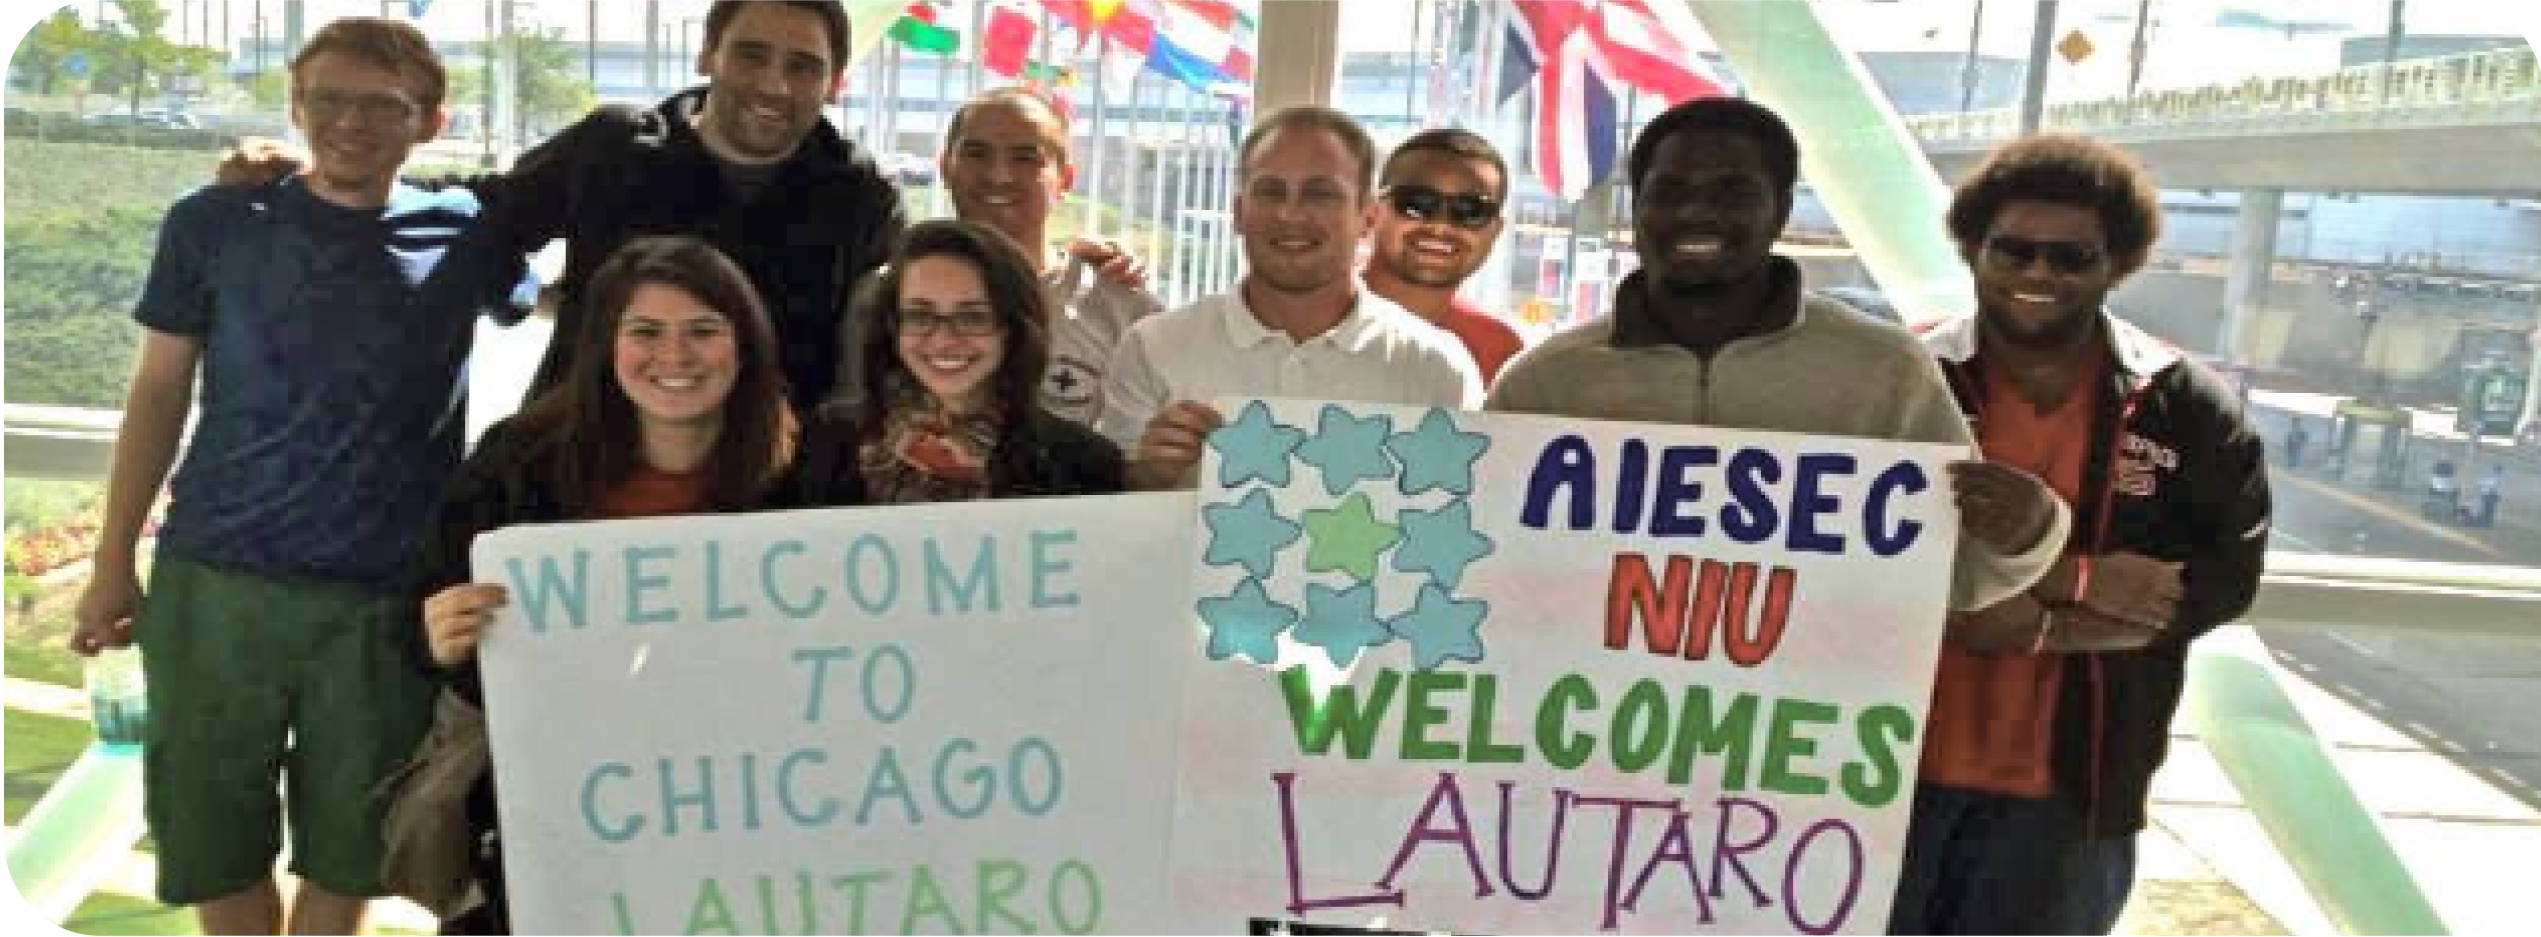 WELCOME
TO
CHICAGO
LAUTARO
AIESEC
NIU
WELCOMES
LAUTARO